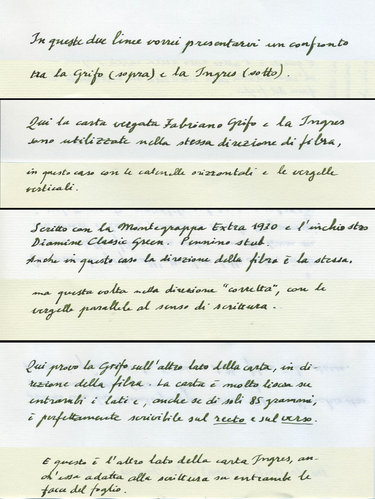 In queste due linee vorrei presentarvi un confronto
tra la Grifo (sopra) e la Ingres (sotto).
Qui la carta vergata Fabriano Grifo e la Ingres
sono utilizzate nella stessa direzione di fibra,
in questo caso con le catenelle orizzontali e le vergelle
verticali.
Scritto con la Montegrappa Extra 1930 e l'inchiostro
Diamine Classic Green. Pennino stub.
Anche in questo caso la direzione della fibra è la stessa,
ma questa volta nella direzione "corretta", con le
vergelle parallele al senso di scrittura.
Qui provo la Grifo sull'altro lato della carta, in di
rezione della fibra. La carta è molto liscia su
entrambi i lati e, anche se di soli 85 grammi,
è perfettamente scrivibile sul recto e sul verso.
E questo è l'altro lato della carta Ingres, an
ch'essa adatta alla scrittura su entrambe le
facce del foglio.